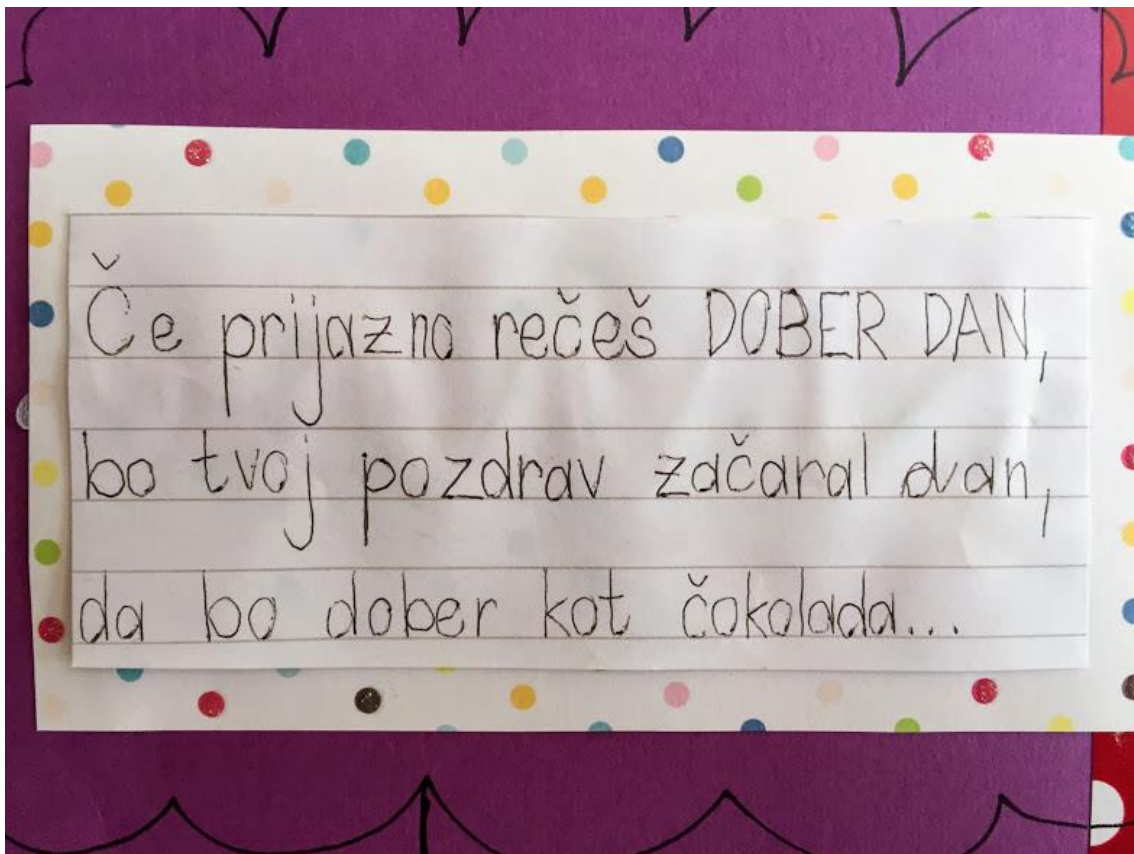 Če prijazno rečeš DOBER DAN,
bo tvoj pozdrav začaral dvan,
da bo dober kot čokolada...